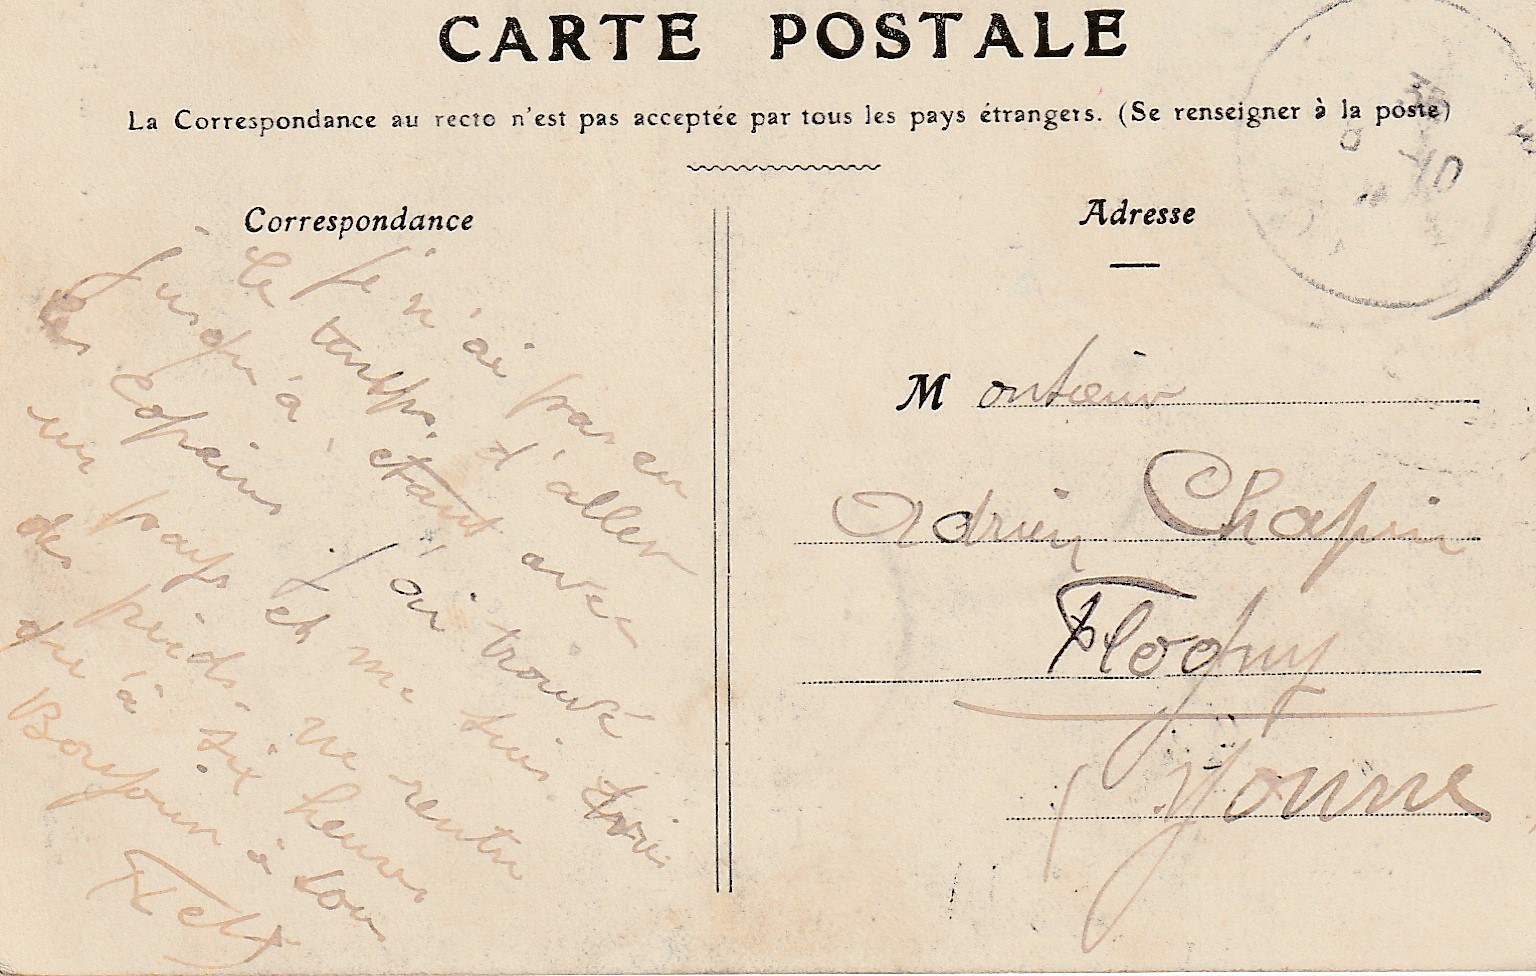 CARTE POSTALE
La Correspondance au recto n'est pas acceptée par tous les pays étrangers. (Se renseigner à la poste)
Correspondance
Je n'ai pas eu
le temps d'aller
jusqu'à, étant avec
les copains j'ai trouvé
un pays et me suis
des pieds. ne rentre
qu'à six heures
Bonjour à tous
Felix
Adresse
Monsieur
Adrien Chapin
Flogny
Yonne
-10